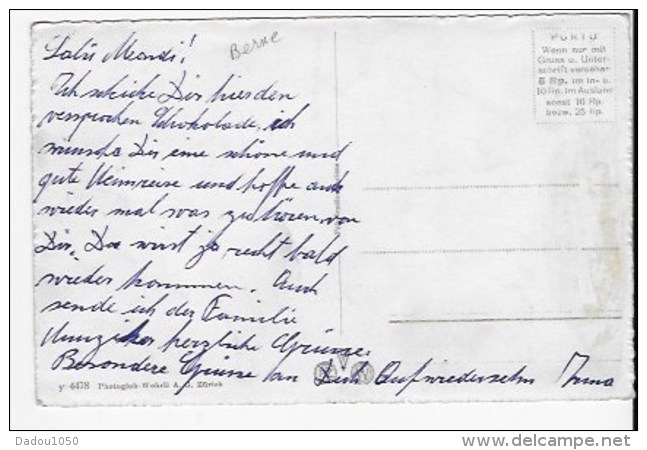 Salü Meandi!
Berne
Ich schicke Dir hier den
versprochen Schokolade, ich
wünsche Dir eine schöne und
gute Heimreise und hoffe auch
wieder mal was zu hören von
Dir, Du wirst ja recht bald
wieder kommen. Auch
sende ich der Familie
Hunziker herzliche Grüsse.
Besondere Grüsse an Dich Aufwiedersehn Irma
PORTO
Wenn nur mit
Gruss u. Unter-
schrift versehen
5 Rp. im In- u.
10 Rp. im Ausland
sonst 10 Rp.
bezw. 25 Rp.
y 4478 Photoglob-Wehrli A. G. Zürich
Dadou1050
www.delcampe.net